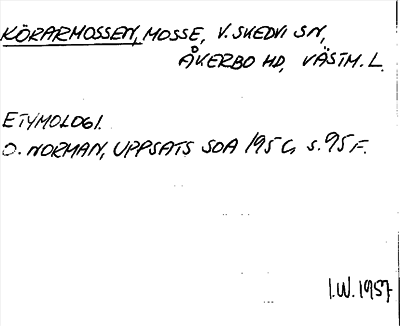 KÖRARMOSSEN, MOSSE, V. SKEDVI SN,
ÅKERBO HD, VÄSTM. L.
ETYMOLOGI.
O. NORMAN, UPPSATS SOA 195 C, S. 95 F.
I.W. 1957